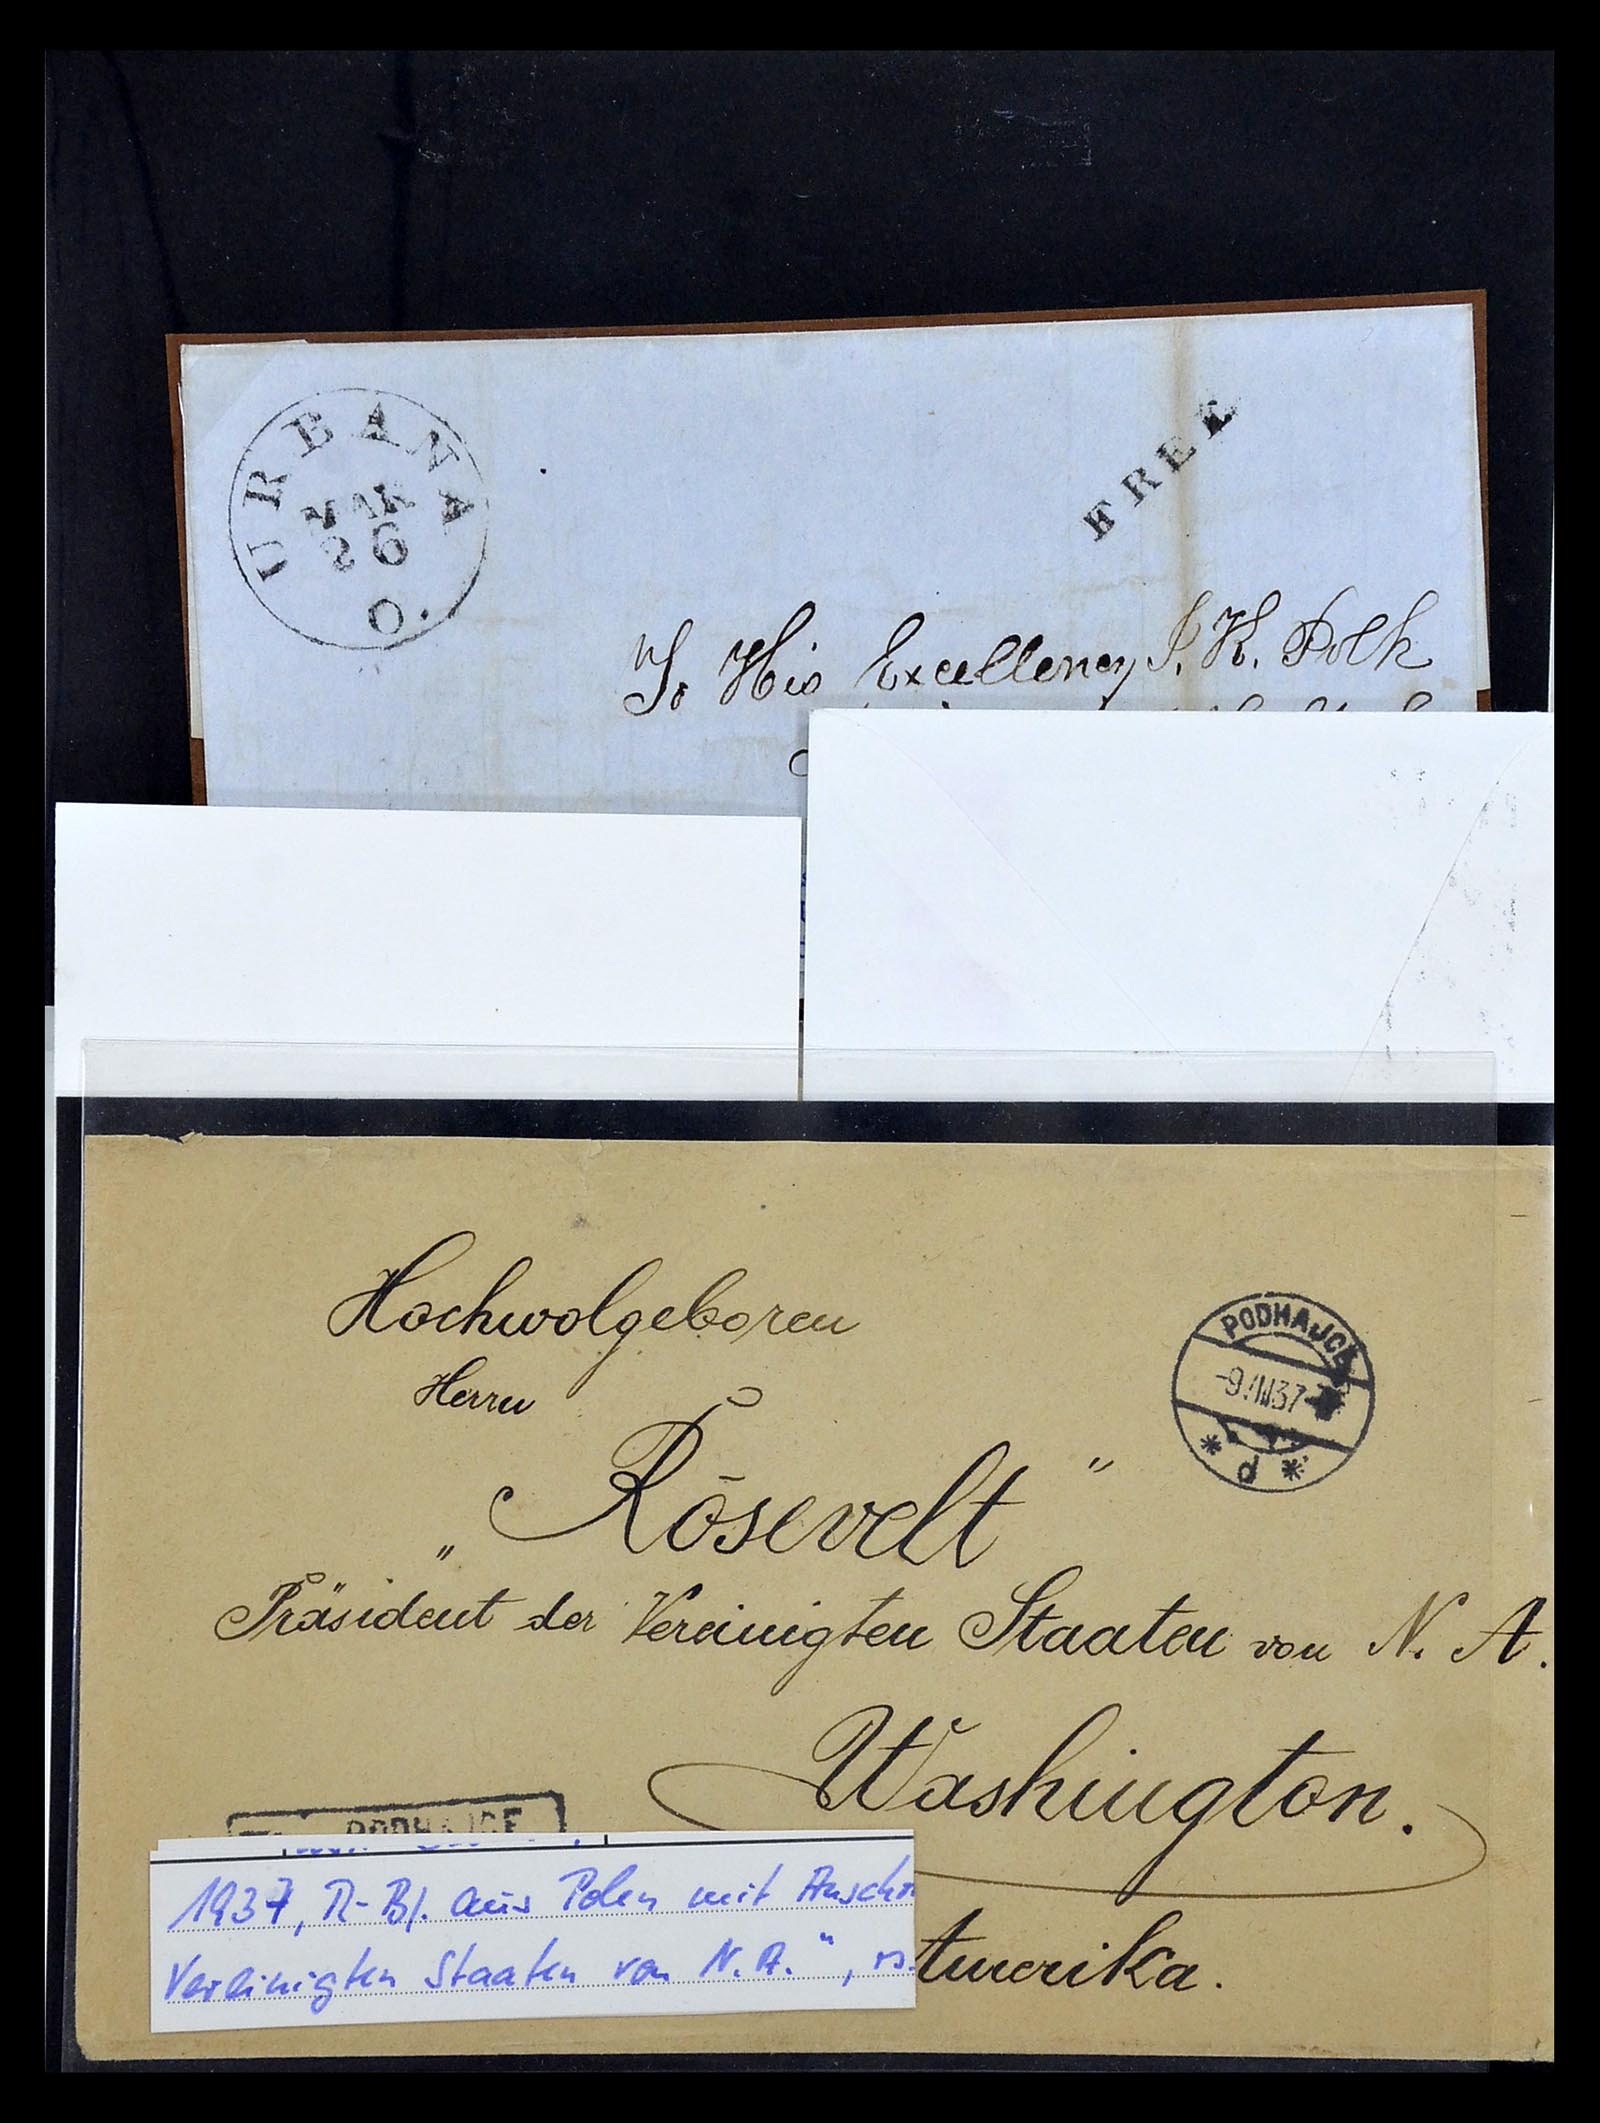 URBANA
MAR
26
O.
FREE
To His Excellency J. K. Polk
Hochwolgeboren
Herrn
„Rösevelt"
Präsident der Vereinigten Staaten von N. A.
Washington.
Amerika.
PODHAJCE
-9. 37
* d *
PODHAJCE
1937, R-Bf. aus Polen mit Anschr
Vereinigten Staaten von N.A.",